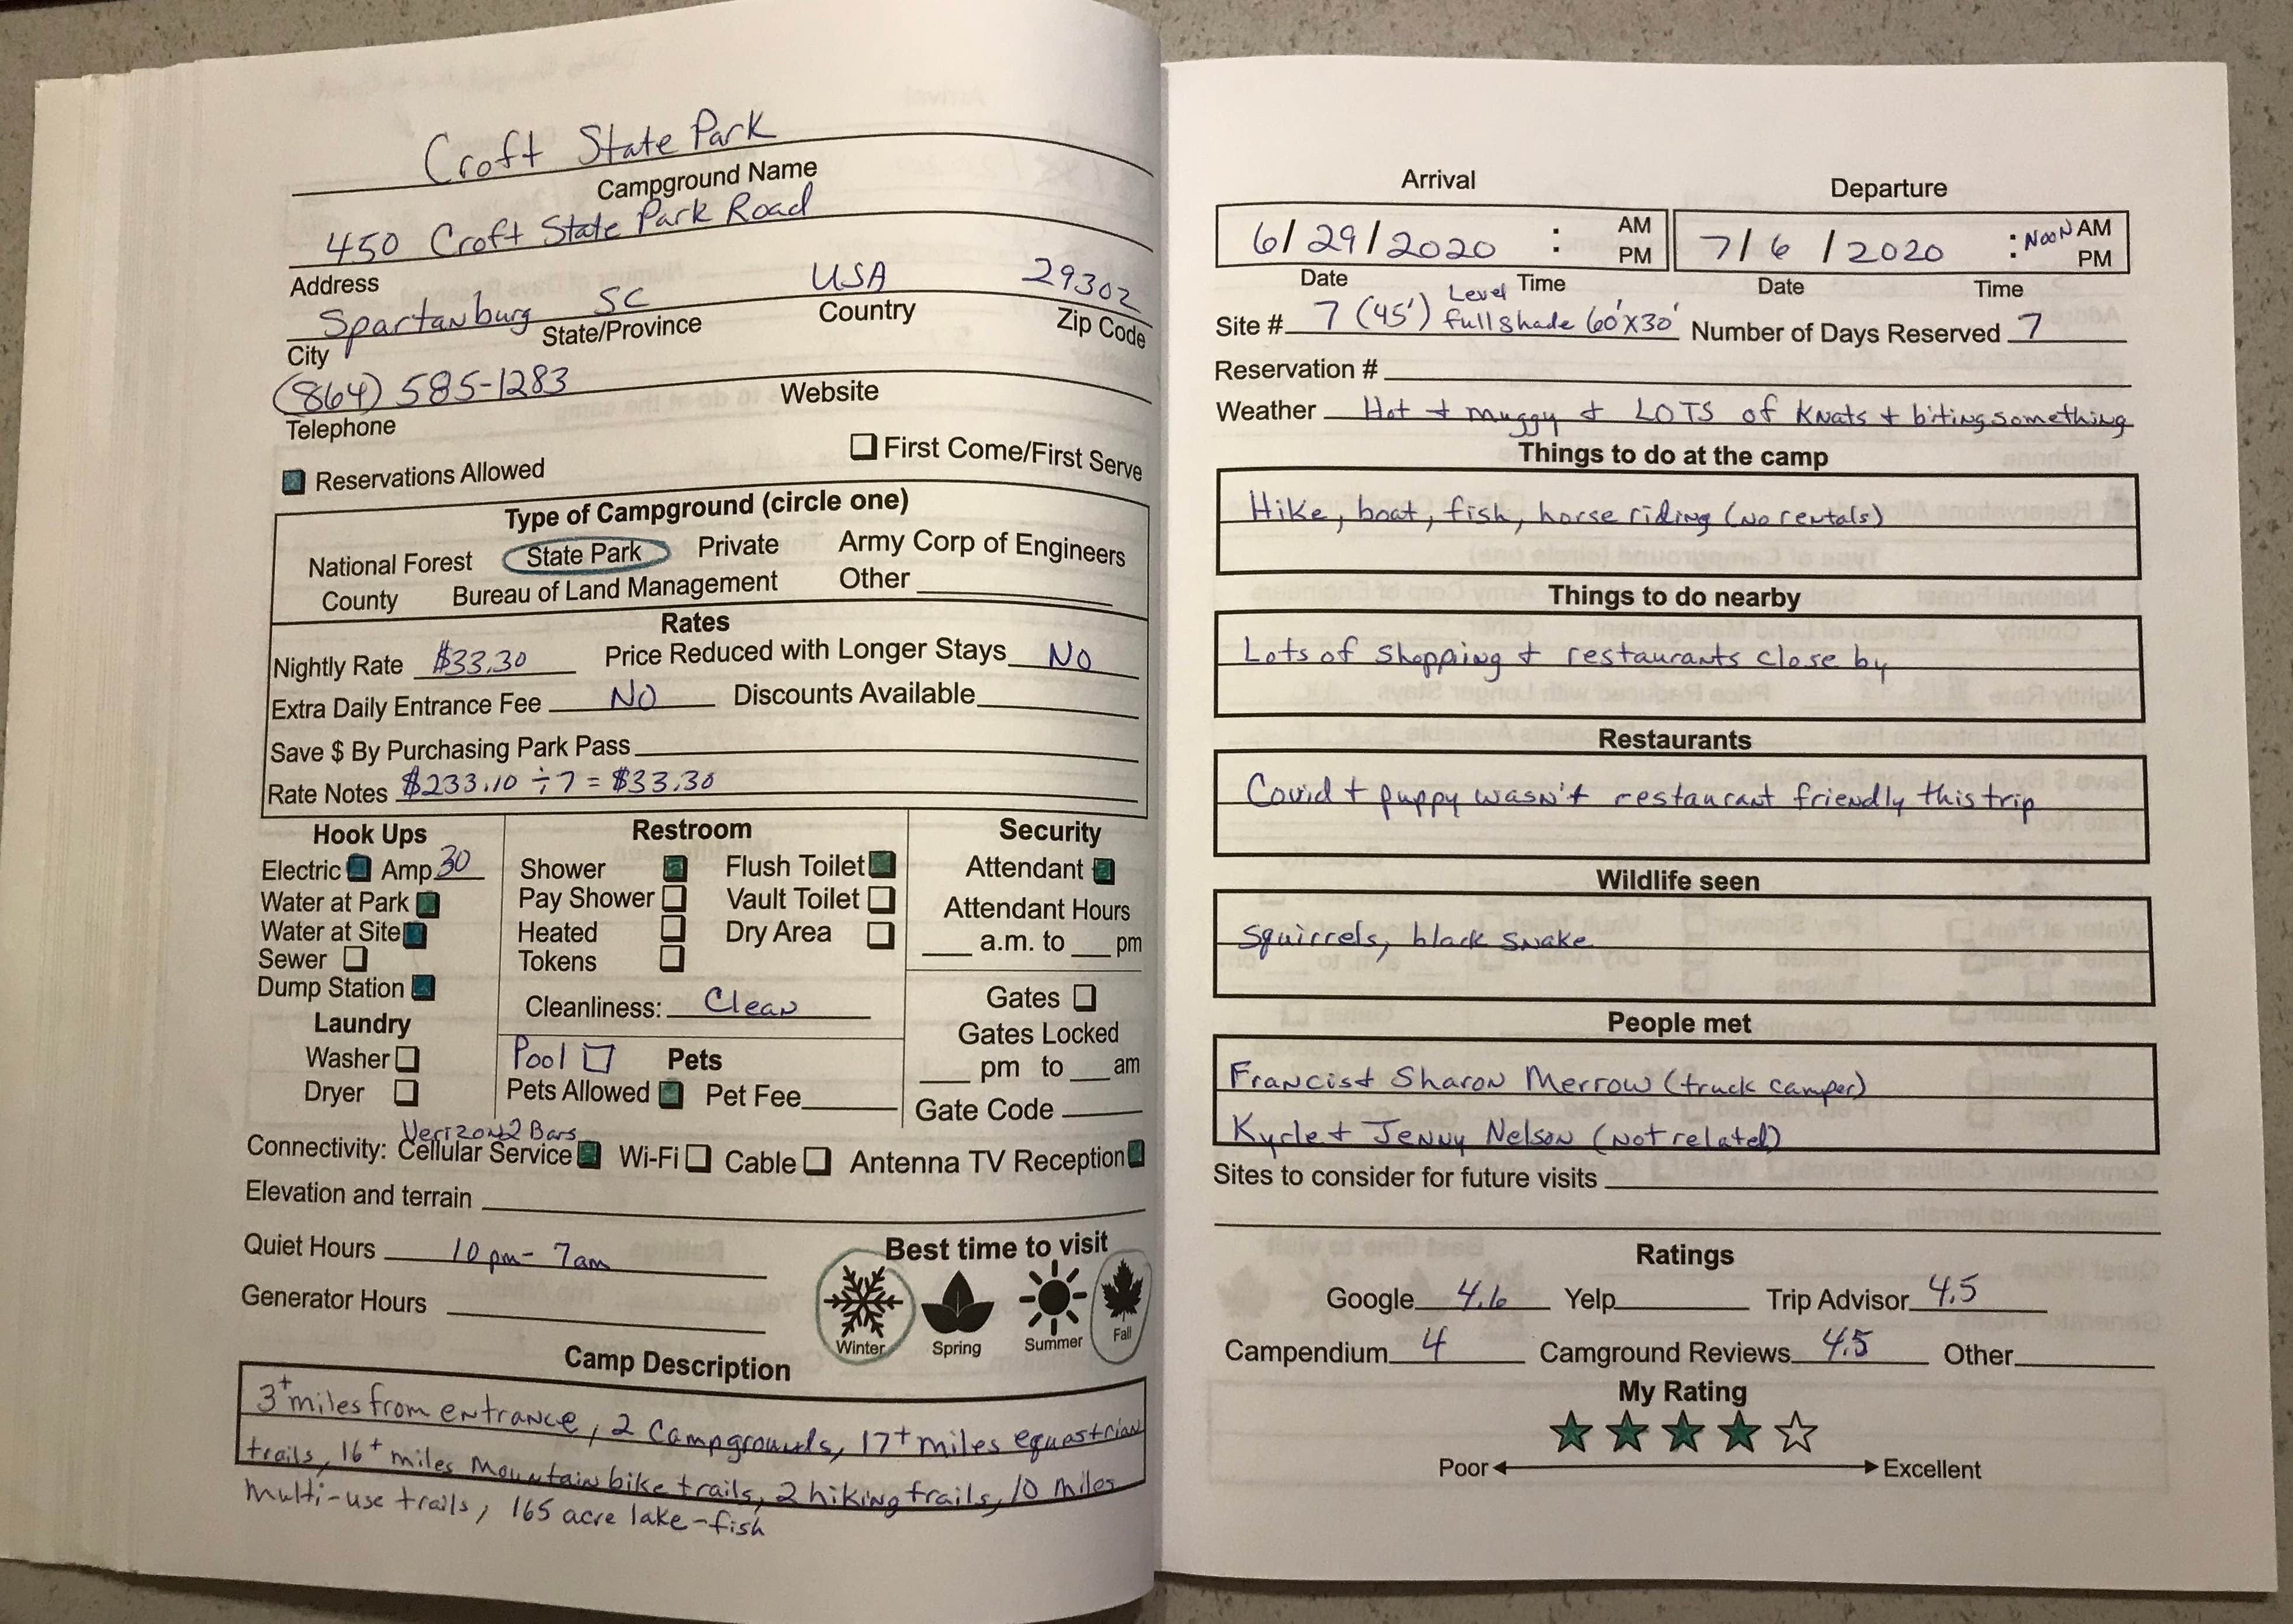 Croft State Park
Campground Name
450 Croft State Park Road
Address
Spartanburg SC USA 29302
City State/Province Country Zip Code
(864) 585-1283 Website
Telephone
Reservations Allowed First Come/First Serve
Type of Campground (circle one)
National Forest State Park Private Army Corp of Engineers
County Bureau of Land Management Other
Rates
Nightly Rate $33.30 Price Reduced with Longer Stays No
Extra Daily Entrance Fee No Discounts Available
Save $ By Purchasing Park Pass
Rate Notes $233.10 ÷ 7 = $33.30
Hook Ups
Electric Amp 30
Water at Park
Water at Site
Sewer
Dump Station
Laundry
Washer
Dryer
Restroom
Shower Flush Toilet
Pay Shower Vault Toilet
Heated Dry Area
Tokens
Cleanliness: Clean
Pool Pets
Pets Allowed Pet Fee
Security
Attendant
Attendant Hours
a.m. to pm
Gates
Gates Locked
pm to am
Gate Code
Verizon 2 Bars
Connectivity: Cellular Service Wi-Fi Cable Antenna TV Reception
Elevation and terrain
Quiet Hours 10pm - 7am
Generator Hours
Best time to visit
Winter Spring Summer Fall
Camp Description
3+ miles from entrance, 2 Campgrounds, 17+ miles equestrian
trails, 16+ miles Mountain bike trails, 2 hiking trails, 10 miles
multi-use trails, 165 acre lake - fish
Arrival Departure
6/29/2020 : AM PM 7/6/2020 : Noon AM PM
Date Time Date Time
Level
Site # 7 (45') full shade (60'x30' Number of Days Reserved 7
Reservation #
Weather Hot + muggy + LOTS of Knats + biting something
Things to do at the camp
Hike, boat, fish, horse riding (no rentals)
Things to do nearby
Lots of shopping + restaurants close by
Restaurants
Covid + puppy wasn't restaurant friendly this trip
Wildlife seen
Squirrels, black snake
People met
Francis + Sharon Merrow (truck camper)
Kyrle + Jenny Nelson (not related)
Sites to consider for future visits
Ratings
Google 4.6 Yelp Trip Advisor 4.5
Campendium 4 Camground Reviews 4.5 Other
My Rating
Poor Excellent